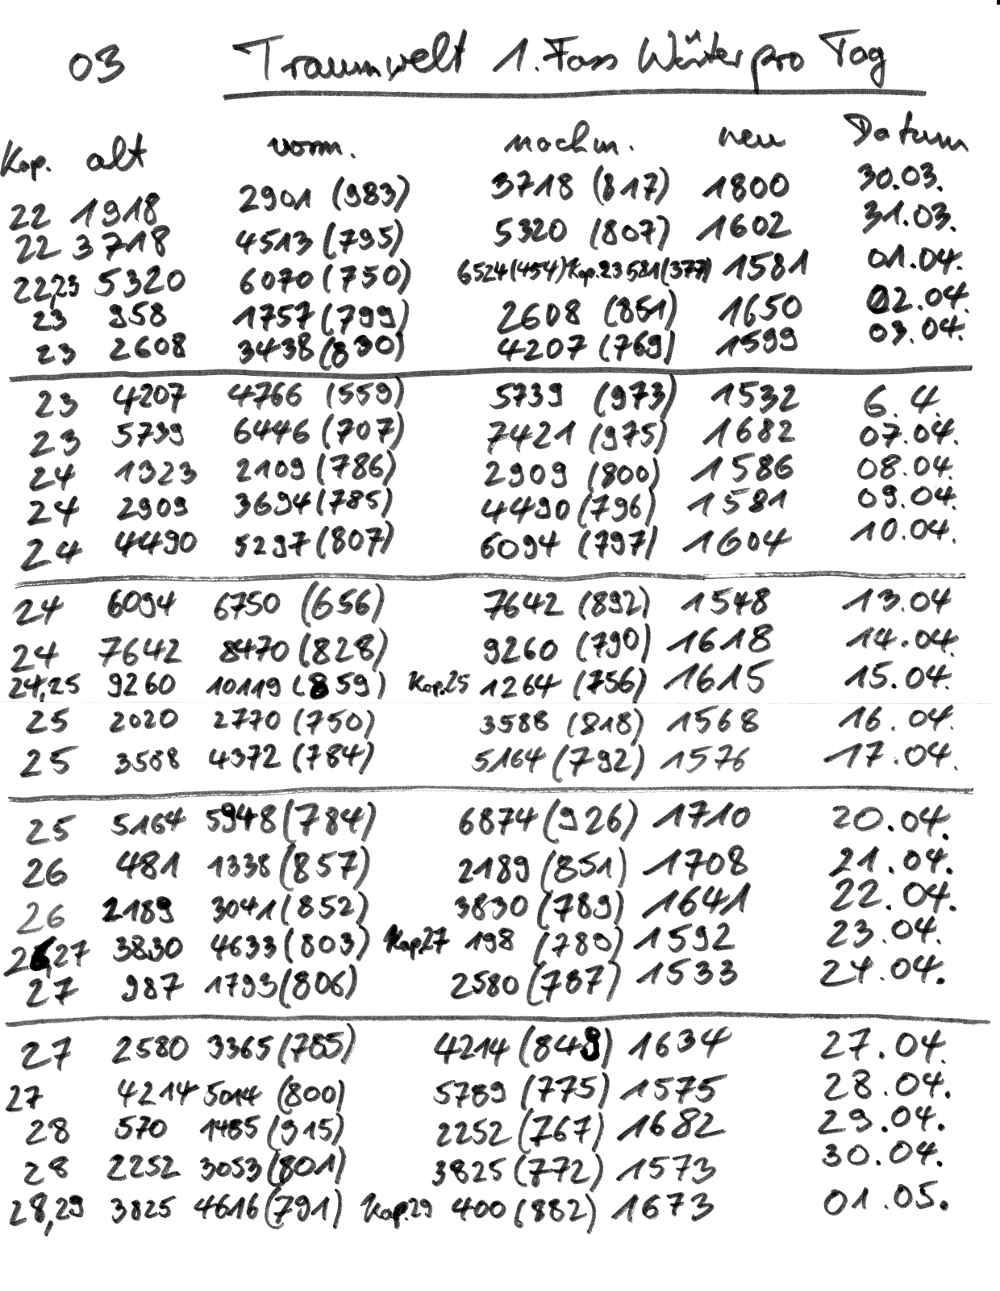 03 Traumwelt 1. Fass Wörter pro Tag
Kap. alt vorm. nachm. neu Datum
22 1918 2901 (983) 3718 (817) 1800 30.03.
22 3718 4513 (795) 5320 (807) 1602 31.03.
22,23 5320 6070 (750) 6524 (454) Kap. 23 581 (377) 1581 01.04.
23 958 1757 (799) 2608 (851) 1650 02.04.
23 2608 3438 (830) 4207 (769) 1599 03.04.
23 4207 4766 (559) 5739 (973) 1532 6.4.
23 5739 6446 (707) 7421 (975) 1682 07.04.
24 1323 2109 (786) 2909 (800) 1586 08.04.
24 2909 3694 (785) 4490 (796) 1581 09.04.
24 4490 5297 (807) 6094 (797) 1604 10.04.
24 6094 6750 (656) 7642 (892) 1548 13.04
24 7642 8470 (828) 9260 (790) 1618 14.04.
24,25 9260 10119 (859) Kap. 25 1264 (756) 1615 15.04.
25 2020 2770 (750) 3588 (818) 1568 16.04.
25 3588 4372 (784) 5164 (792) 1576 17.04.
25 5164 5948 (784) 6874 (926) 1710 20.04.
26 481 1338 (857) 2189 (851) 1708 21.04.
26 2189 3041 (852) 3830 (789) 1641 22.04.
26,27 3830 4633 (803) Kap. 27 198 (789) 1592 23.04.
27 987 1793 (806) 2580 (787) 1533 24.04.
27 2580 3365 (785) 4214 (849) 1634 27.04.
27 4214 5014 (800) 5789 (775) 1575 28.04.
28 570 1485 (915) 2252 (767) 1682 29.04.
28 2252 3053 (801) 3825 (772) 1573 30.04.
28,29 3825 4616 (791) Kap. 29 400 (882) 1673 01.05.